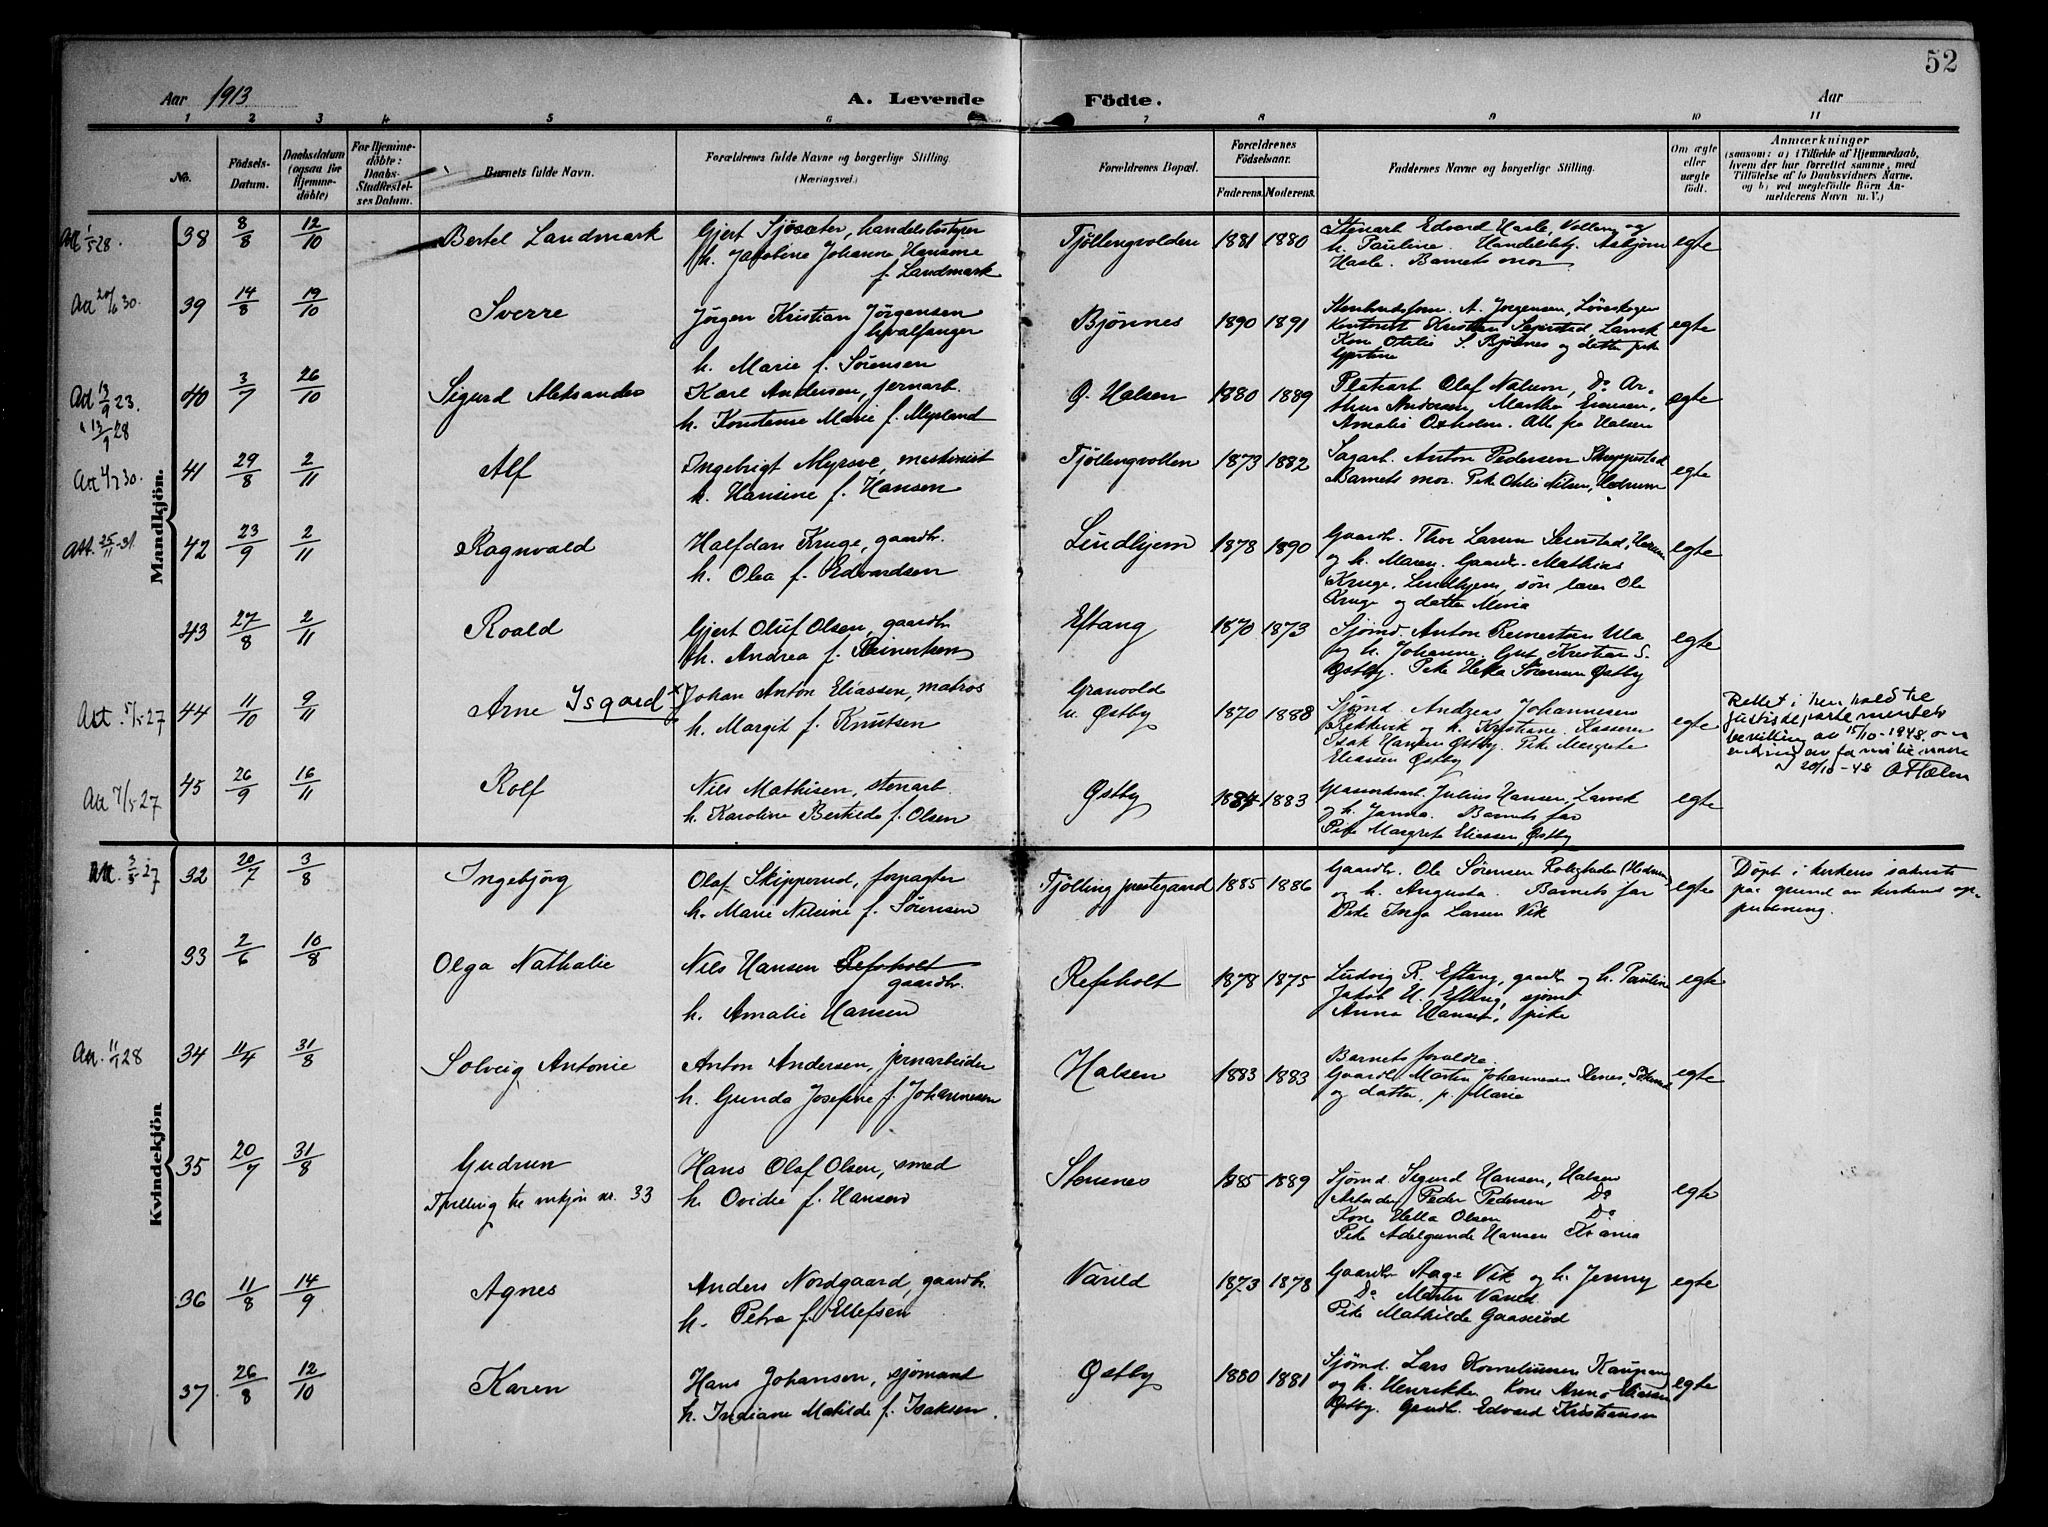 52
Aar 1913
A. Levende
Födte.
Aar
1 2 3 4 5 6 7 8 9 10 11
No.
Födsels-Datum.
Daabsdatum (ogsaa for Hjemme-döbte)
For Hjemme-döbte: Daabs-Stadfæstel-ses Datum.
Barnets fulde Navn.
Forældrenes fulde Navne og borgerlige Stilling. (Næringsvei.)
Forældrenes Bopæl.
Forældrenes Födselsaar.
Faderens. Moderens.
Faddernes Navne og borgerlige Stilling.
Om ægte eller uægte födt.
Anmærkninger
(saasom: a) i Tilfælde af Hjemmedaab, hvem der har forrettet samme, med Tilföielse af to Daabsvidners Navne. og b) ved uægtefödte Börn An-melderens Navn m. V.)
Mandkjön.
38 8/8 12/10 Bertel Landmark
Gjert Sjøsæter, handelsbestyrer
h. Jacobine Johanne Hansine
f. Landmark
Tjøllingvolden 1881 1880
Stenarb. Edvard Hasle, Vollen og
h. Pauline. Handelsbetj. Asbjørn
Hasle. Barnets mor
egte
Att 20/6 30.
39 14/8 19/10 Sverre
Jörgen Kristian Jörgensen
hvalfanger
h. Marie f. Sörensen
Bjönnes 1890 1891
egte
Att 13/9 23.
" 13/9 28
40 3/7 26/10 Sigurd Aleksander
Karl Andersen, jernarb.
h. Konstanse Marie f. Myrland
Ø. Halsen 1880 1889
Pladsarb. Olaf Nalum, Do Ar-
thur Andersen, Martha Einersen,
Amalie Oxholm. Alle fra Halsen
egte
Att 4/7 30.
41 29/8 2/11 Alf
Ingebrigt Myrsve, maskinist
h. Hansine f. Hansen
Tjöllingvollen 1873 1882
Sagarb. Anton Pedersen
Barnets mor. Pike Otilie Nilsen, Hedrum
egte
Att. 25/11-31.
42 23/9 2/11 Ragnvald
Halfdan Kruge, gaardbr.
h. Olea f. Edvardsen
Lindhjem 1878 1890
Gaardbr. Thor Larsen
og h. Maren. Gaardbr. Mathias
Kruge, Lindhjem, søn lærer Ole
Kruge og datter Maria
egte
43 27/8 2/11 Roald
Gjert Oluf Olsen, gaardbr.
h. Andrea f. Reinertsen
Eftang 1870 1873
Sjömd. Anton Reinertsen Ula
og h. Johanne. Gut Kristian S.
Østby. Pike Helka Sörensen Østby
egte
Att. 5/5-27
44 11/10 9/11 Arne Isgard x)
Johan Anton Eliassen, matros
h. Margit f. Knutsen
Granvold
u. Østby 1870 1888
Sjömd. Andreas Johannesen
Rekkevik og h. Kristiane. Kasserer
Isak Hansen Østby. Pike Margrete
Eliassen Østby
egte
Rettet i henhold til
justisdepartementets
bevilling av 15/10-1948 om
endring av familienavn
20/10-48
Att 7/5-27
45 26/9 16/11 Rolf
Nils Mathisen, stenarb.
h. Karoline Bertilde f. Olsen
Østby 1884 1883
Glassverksarb. Julius Hansen, Larvik
og h. Janna. Barnets far
Pike Margrete Eliassen, Østby
egte
Kvindekjön
Att. 3/5-27
32 20/7 3/8 Ingebjörg
Olaf Skipperud, forpagter
h. Marie Nilsine f. Sörensen
Tjölling prestegaard 1885 1886
Gaardbr. Ole Sörensen Roligheden (Hedrum)
og h. Augusta. Barnets far
Pike Inga Larsen Vik
egte
Döpt i kirkens sakristi
paa grund av kirkens op-
pudsning.
33 2/6 10/8 Olga Nathalie
Nils Hansen Refsholt
gaardbr.
h. Amalie Hansen
Refsholt 1878 1875
Ludvig R. Eftang, gaardbr og h. Pauline
Jakob H. Eftang, sjömd
Anna Hansen, pike
egte
Att. 11/1 28
34 11/4 31/8 Solveig Antonie
Anton Andersen, jernarbeider
h. Gunda Josefine f. Johannesen
Halsen 1883 1883
Barnets foreldre.
Gaardbr Martin Johannesen
og datter, p. Marie
egte
35 20/7 31/8 Gudrun
Tvilling til mkjøn nr. 33
Hans Olaf Olsen, smed
h. Ovidia f. Hansen
Stensnes 1885 1889
Sjömd. Sigurd Hansen, Halsen
Arbeider Peder Pedersen Do
Kone Hella Olsen Do
Pike Adelgunde Hansen Kr.ania
egte
36 11/8 14/9 Agnes
Anders Nordgaard, gaardbr.
h. Petra f. Ellefsen
Varild 1873 1878
Gaardbr Aage Vik og h. Jenny
Do Martin Varild
Pike Mathilde Gaaserød
egte
37 26/8 12/10 Karen
Hans Johansen, sjömand
h. Indiane Matilde f. Isaksen.
Østby 1880 1881
Sjömd. Lars Korneliussen Kaupang
og h. Henrikke. Kone Anna Eliassen
Østby. Gaardbr. Edvard Kristiansen
egte